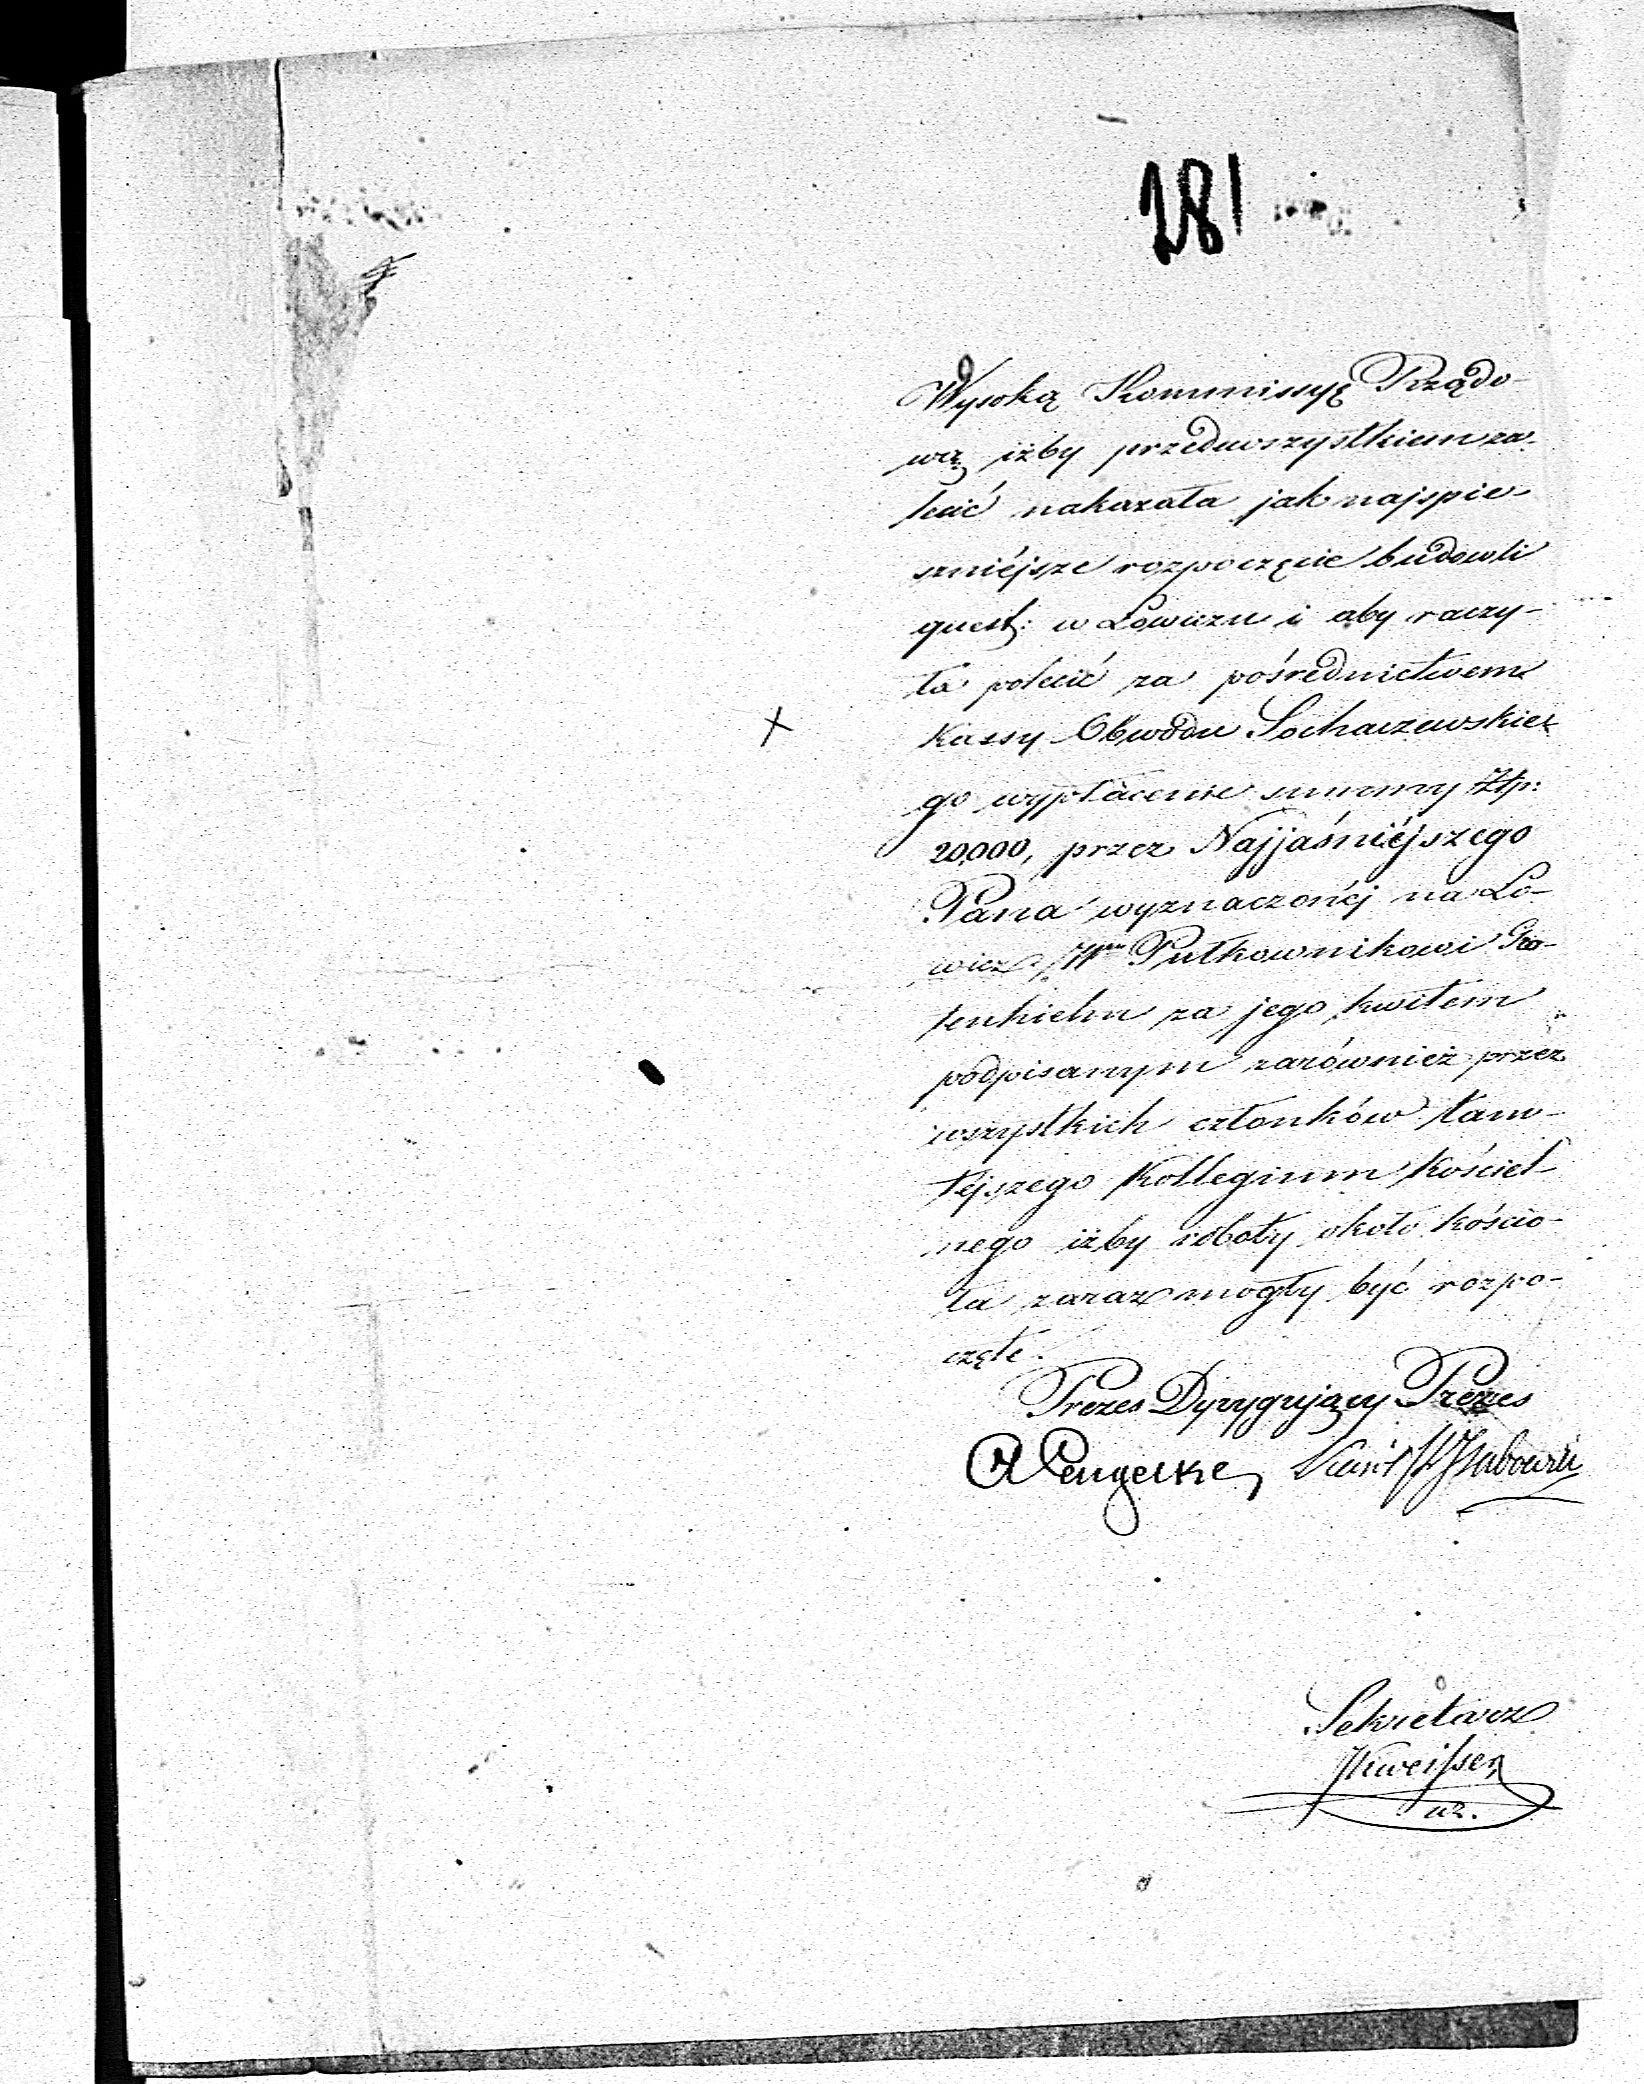 281
Wysoką Kommissyę Rządo-
wą iżby przedewszystkiem za-
lecić nakazała jak najspie-
szniéjsze rozpoczęcie budowli
quest: w Łowiczu i aby raczy-
ła polecić za pośrednictwem
Kassy Obwodu Sochaczewskie-
go wypłacenie summy Złp:
20,000, przez Najjaśniéjszego
Pana wyznaczonéj na Ło-
wicz, Wmu Pułkownikowi Gro-
tenhielm za jego kwitem
podpisanym zarównież przez
wszystkich członków tam-
tejszego Kollegium Kościel-
nego iżby roboty około kościo-
ła zaraz mogły być rozpo-
częte.
Prezes Dyrygujący Prezes
Sekretarz